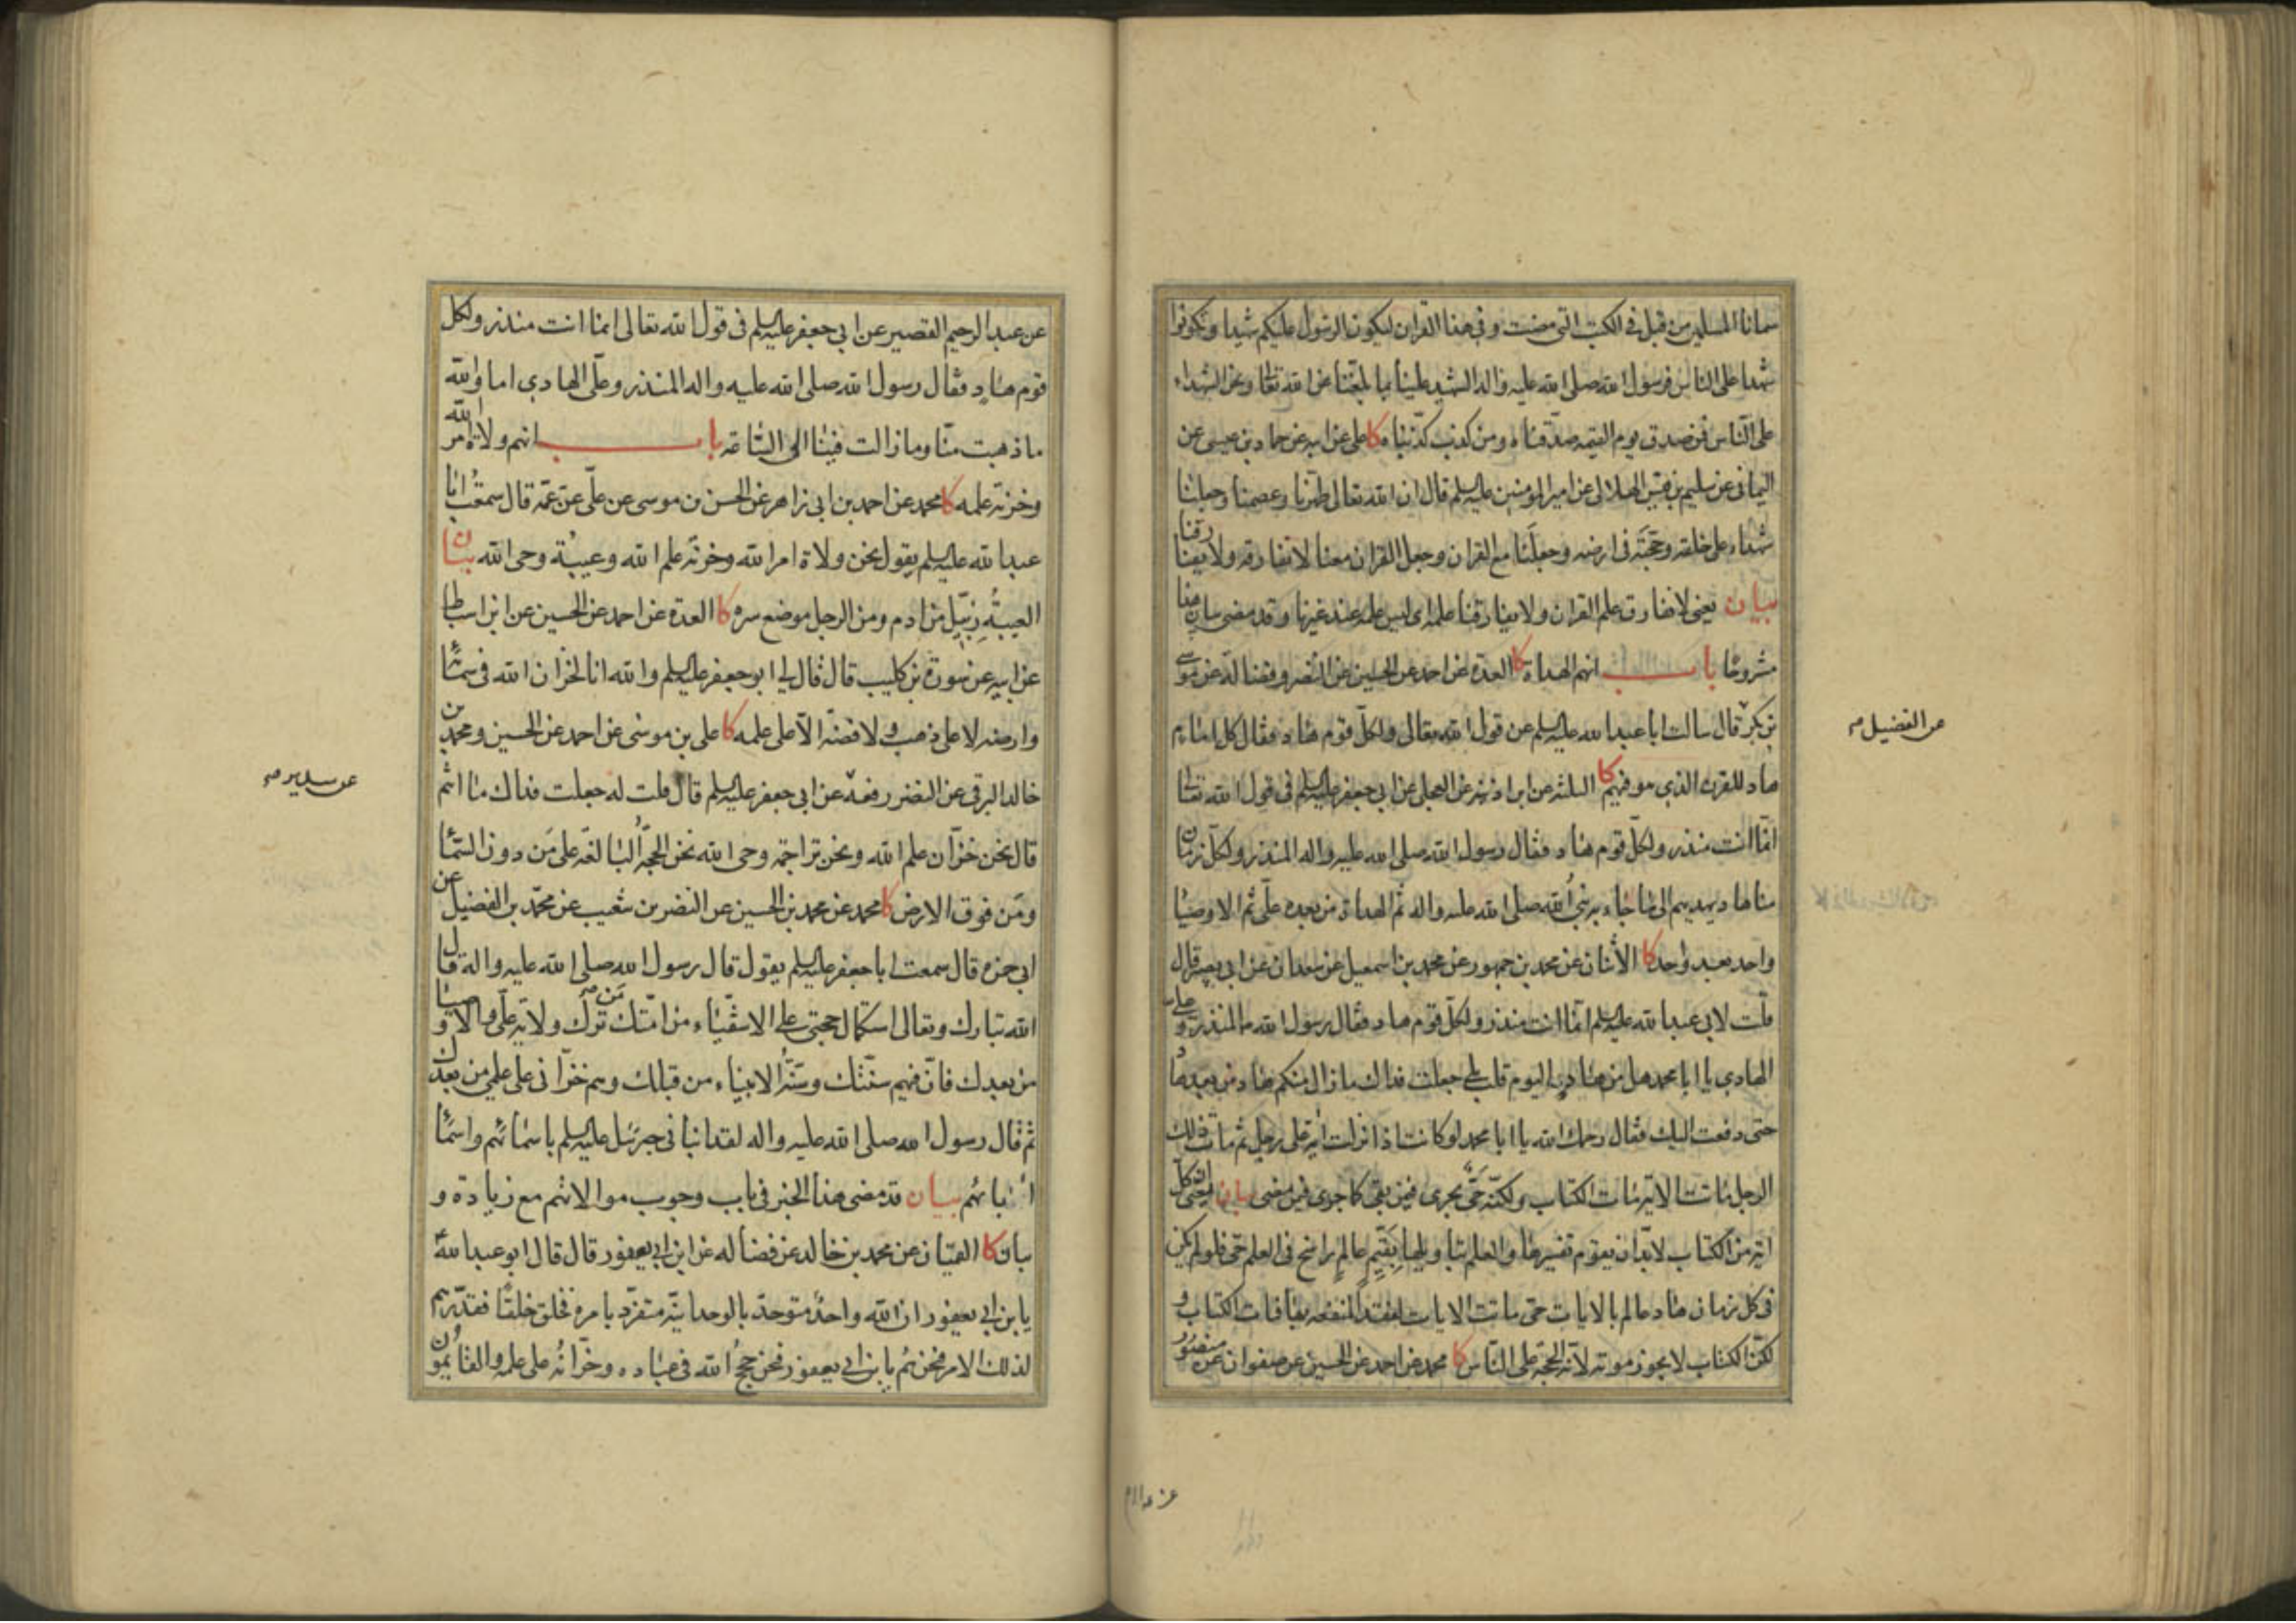 سمانا المسلمين من قبل في الكتب التي مضت وفي هذا القران ليكون الرسول عليكم شهيدا وتكونوا
شهداء على الناس فرسول الله صلى الله عليه واله الشهيد علينا بما بلغنا عن الله تعالى ونحن الشهداء
على الناس فمن صدق يوم القيمه صدقناه ومن كذب كذبناه كا على عن ابيه عن حماد بن عيسى عن
اليماني عن سليم بن قيس الهلالى عن امير المومنين عليه السلم قال ان الله تعالى طهرنا وعصمنا وجعلنا
شهداء على خلقه وحجته فى ارضه وجعلنا مع القران وجعل القران معنا لا نفارقه ولا يفارقنا
بيان يعنى لا نفارق علم القران ولا يفارقنا علمه اى ليس علمه عند غيرنا وقد مضى بيان هذا
مشروحا باب انهم الهداه كا العدة عن احمد عن الحسين عن النضر وفضالة عن موسى
بن بكر قال سالت ابا عبدا لله عليه السلم عن قول الله تعالى ولكل قوم هاد فقال كل امام
هاد للقرن الذي هو فيهم كا الثلثه عن ابن اذينه عن العجلى عن ابي جعفر عليه السلم فى قول الله تعالى
انما انت منذر ولكل قوم هاد فقال رسول الله صلى الله عليه واله المنذر ولكل زمان
منا هاد يهديهم الى ما جاء به نبى الله صلى الله عليه واله ثم الهداة من بعده على ثم الاوصياء
واحد بعد واحد كا الاثنان عن محمد بن جمهور عن محمد بن اسمعيل عن سعدان عن ابى بصير قال
قلت لابى عبدا لله عليه السلم انما انت منذر ولكل قوم هاد فقال رسول الله المنذر وعلى
الهادى يا ابا محمد هل من هاد اليوم قلت بلى جعلت فداك ما زال منكم هاد من بعد هاد
حتى دفعت اليك فقال رحمك الله يا ابا محمد لو كانت اذا نزلت اية على رجل ثم مات ذلك
الرجل ماتت الاية مات الكتاب ولكنه حى يجرى فيمن بقى كما جرى فيمن مضى بيان يعنى ان كل
اية من الكتاب لابد ان يقوم تفسيرها والعلم بتاويلها بقيم عالم راسخ فى العلم حى فلو لم يكن
فى كل زمان هاد عالم بالايات حى ماتت الايات لفقد المنفعه بها فمات الكتاب و
لكن الكتاب لا يجوز موته لانه الحجة على الناس كا محمد عن احمد عن الحسين عن صفوان عن منصور
عن الفضيل صح
عن عبد الرحيم القصير عن ابي جعفر عليه السلم فى قول الله تعالى انما انت منذر ولكل
قوم هاد فقال رسول الله صلى الله عليه واله المنذر وعلى الهادى اما والله
ما ذهبت منا وما زالت فينا الى الساعة باب انهم ولاة امر الله
وخزنة علمه كا محمد عن احمد بن ابى زاهر عن الحسن بن موسى عن على عن عمه قال سمعت ابا
عبدا لله عليه السلم يقول نحن ولاة امر الله وخزنة علم الله وعيبة وحى الله بيان
العيبة زبيل من ادم ومن الرجل موضع سره كا العدة عن احمد عن الحسين عن ابن اسباط
عن ابيه عن سورة بن كليب قال قال لى ابو جعفر عليه السلم والله انا لخزان الله فى سمائه
وارضه لا على ذهب ولا فضة الا على علمه كا على بن موسى عن احمد عن الحسين ومحمد بن
خالد البرقى عن النضر رفعه عن ابى جعفر عليه السلم قال قلت له جعلت فداك ما انتم
قال نحن خزان علم الله ونحن تراجمة وحى الله نحن الحجة البالغة على من دون السماء
ومن فوق الارض كا محمد عن محمد بن الحسين عن النضر بن شعيب عن محمد بن الفضيل عن
ابى حمزه قال سمعت ابا جعفر عليه السلم يقول قال رسول الله صلى الله عليه واله قال
الله تبارك وتعالى استكمال حجتى على الاشقياء من امتك من ترك ولاية على والاوصياء
من بعدك فان فيهم سنتك وسنة الانبياء من قبلك وهم خزانى على علمى من بعدك
ثم قال رسول الله صلى الله عليه واله لقد انبانى جبرئيل عليه السلم باسمائهم واسماء
ابائهم بيان قد مضى هذا الخبر فى باب وجوب موالاتهم مع زيادة و
بيان كا القميان عن محمد بن خالد عن فضالة عن ابن ابى يعفور قال قال ابو عبدا لله
يا بن ابى يعفور ان الله واحد متوحد بالوحدانية متفرد بامره فخلق خلقا فقدرهم
لذلك الامر فنحن هم يا بن ابى يعفور فنحن حجج الله فى عباده وخزانه على علمه والقائمون
عن سدير صح